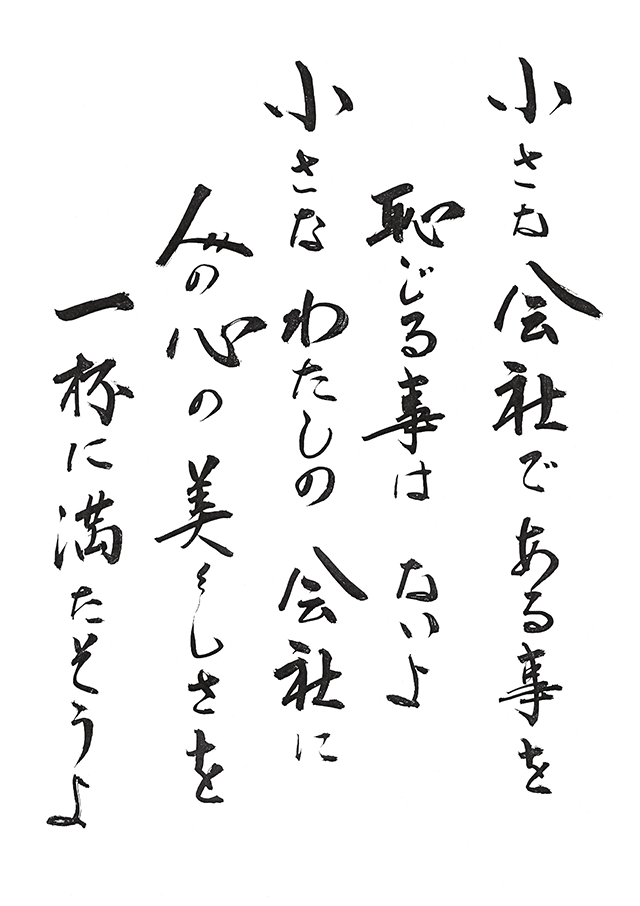 小さな会社である事を
恥じる事は ないよ
小さな わたしの 会社に
人々の心の美くしさを
一杯に満たそうよ